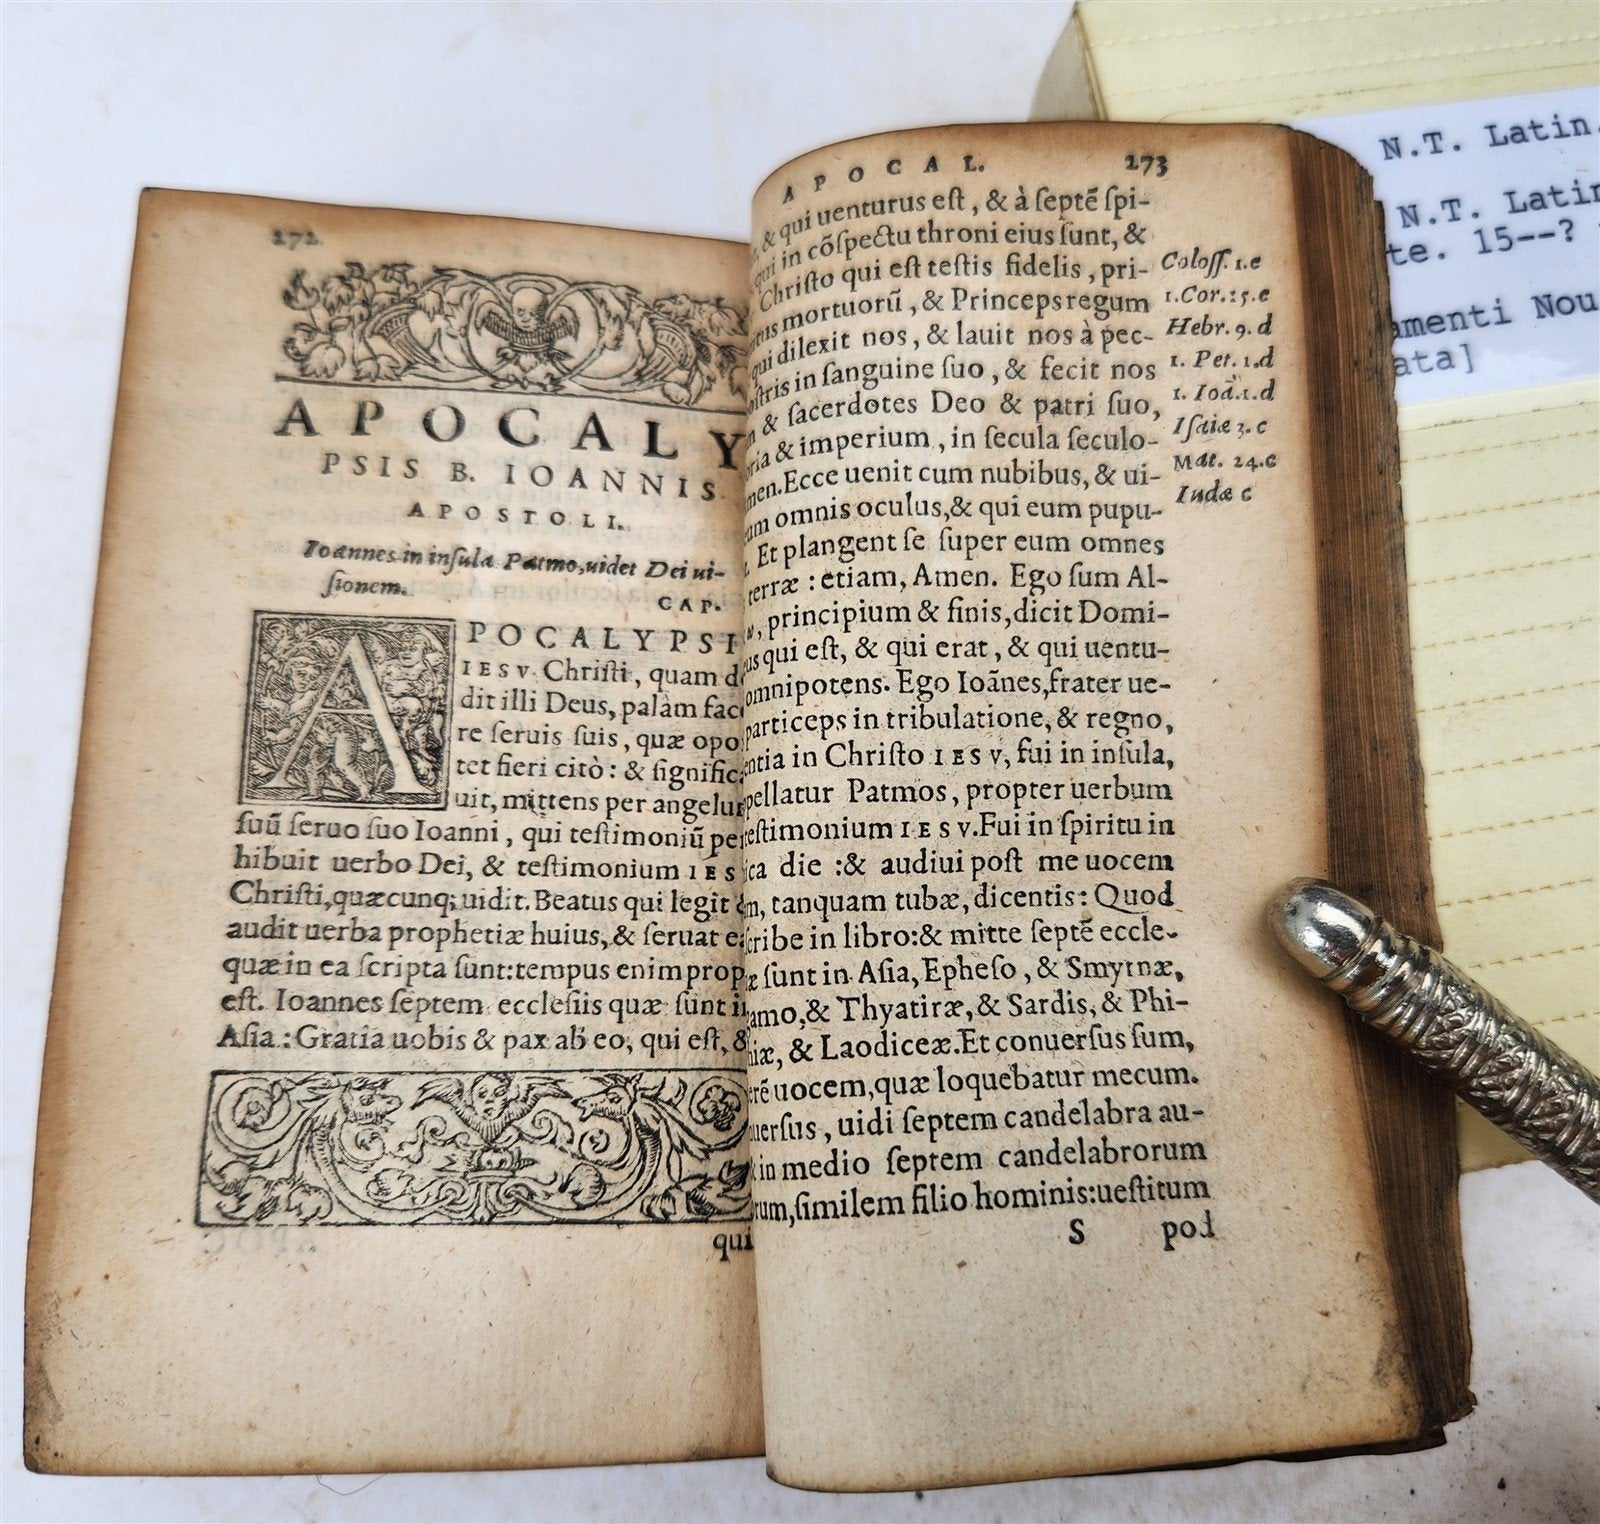 272
APOCALY
PSIS B. IOANNIS
APOSTOLI.
Ioannes in inſula Patmo, uidet Dei ui-
ſionem.
CAP.
APOCALYPSI
IESV Chriſti, quam de
dit illi Deus, palàm fac
re ſeruis ſuis, quæ opo
tet fieri citò: & ſignific
uit, mittens per angelu
ſuũ ſeruo ſuo Ioanni, qui teſtimoniũ pe
hibuit uerbo Dei, & teſtimonium IES
Chriſti, quæcunq; uidit. Beatus qui legit
audit uerba prophetiæ huius, & ſeruat e
quæ in ea ſcripta ſunt: tempus enim prop
eſt. Ioannes ſeptem eccleſiis quæ ſunt i
Aſia: Gratia uobis & pax ab eo, qui eſt, &
qui
APOCAL. 273
& qui uenturus eſt, & à ſeptẽ ſpi-
qui in cõſpectu throni eius ſunt, &
Chriſto qui eſt teſtis fidelis, pri-
mortuorũ, & Princeps regum
qui dilexit nos, & lauit nos à pec-
oſtris in ſanguine ſuo, & fecit nos
& ſacerdotes Deo & patri ſuo,
ria & imperium, in ſecula ſeculo-
men. Ecce uenit cum nubibus, & ui-
um omnis oculus, & qui eum pupu-
Et plangent ſe ſuper eum omnes
terræ: etiam, Amen. Ego ſum Al-
ω, principium & finis, dicit Domi-
us qui eſt, & qui erat, & qui uentu-
omnipotens. Ego Ioãnes, frater ue-
particeps in tribulatione, & regno,
entia in Chriſto IESV, fui in inſula,
pellatur Patmos, propter uerbum
teſtimonium IESV. Fui in ſpiritu in
ica die: & audiui poſt me uocem
m, tanquam tubæ, dicentis: Quod
ſcribe in libro: & mitte ſeptẽ eccle-
æ ſunt in Aſia, Epheſo, & Smyrnæ,
amo, & Thyatiræ, & Sardis, & Phi-
iæ, & Laodiceæ. Et conuerſus ſum,
rẽ uocem, quæ loquebatur mecum.
uerſus, uidi ſeptem candelabra au-
in medio ſeptem candelabrorum
rum, ſimilem filio hominis: ueſtitum
S pod
Coloſſ. 1.e
1.Cor.15.e
Hebr. 9. d
1. Pet. 1.d
1. Ioã.1.d
Iſaiæ 3. c
Mat. 24.c
Iudæ c
N.T. Latin.
N.T. Latin
te. 15--?
amenti Nou
ata]